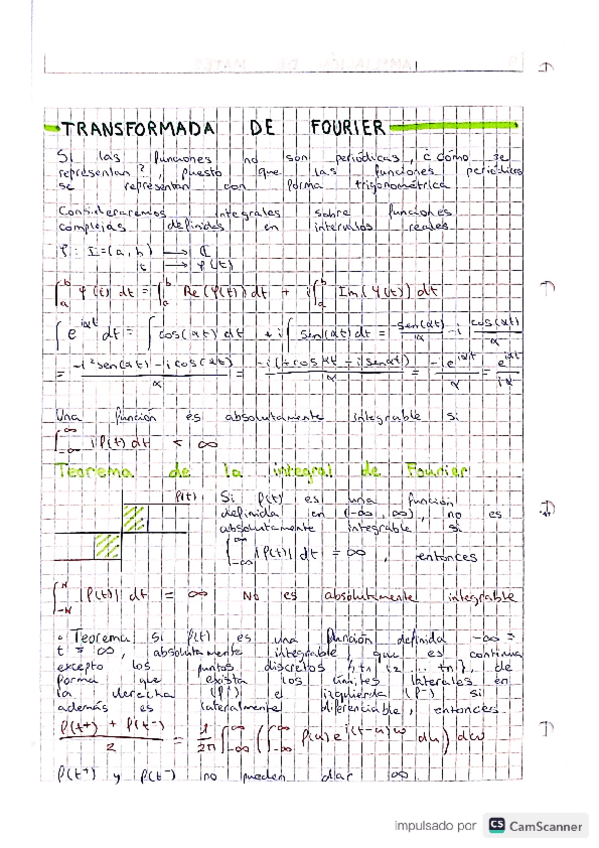 TRANSFORMADA DE FOURIER
Si las funciones no son periódicas, ¿cómo se
representan?, puesto que las funciones periódicas
se representan con forma trigonométrica
Consideraremos integrales sobre funciones
complejas definidas en intervalos reales
φ: I=(a,b) → ℂ
t → φ(t)
∫_a^b φ(t) dt = ∫_a^b Re(φ(t)) dt + i∫_a^b Im(φ(t)) dt
∫e^{iαt} dt = ∫cos(αt) dt + i∫sen(αt) dt = -sen(αt)/α - i cos(αt)/α
= -i²sen(αt) - i cos(αt)/α = = -i e^{iαt}/α = e^{iαt}/iα
Una función es absolutamente integrable si
∫_{-∞}^{∞} |f(t) dt < ∞
Teorema de la integral de Fourier
f(t)
Si f(t) es una función
definida en (-∞, ∞), no es
absolutamente integrable si
∫_{-∞}^{∞} |f(t)| dt = ∞, entonces
|f(t)| dt = ∞ No es absolutamente integrable
• Teorema si f(t) es una función definida
absolutamente integrable, que es continua
excepto los puntos discretos de
forma que exista los límites laterales en
la derecha (f⁺) e izquierda (f⁻) si
además es lateralmente diferenciable, entonces.
f(t⁺) + f(t⁻)/2 = 1/2π ∫_{-∞}^{∞} (∫_{-∞}^{∞} f(u) e^{i(t-u)w} du) dw
f(t⁺) y f(t⁻) no pueden dar ∞
impulsado por CS CamScanner